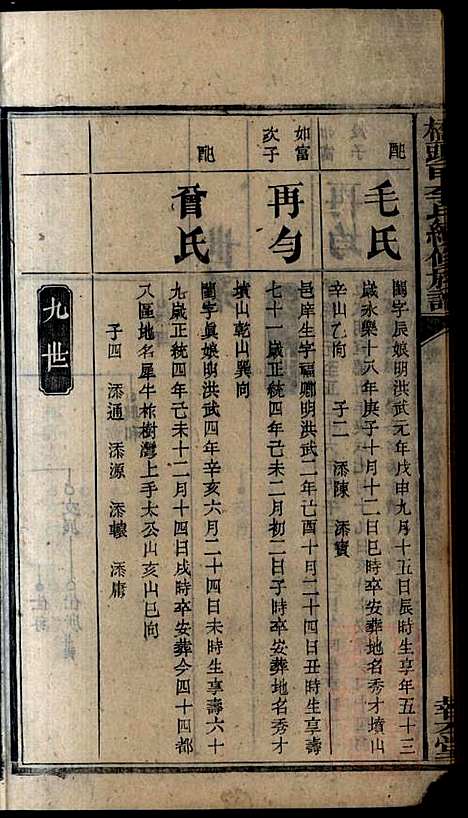 配
毛氏
閨字辰娘明洪武元年戊申九月十五日辰時生享年五十三
歲永樂十八年庚子十月十二日巳時卒安葬地名秀才墳山
辛山乙向 子二 添陳 添寶
如富
次子
再勻
邑庠生字福卿明洪武二年己酉十月二十四日丑時生享壽
七十一歲正統四年己未二月初二日子時卒安葬地名秀才
墳山乾山巽向
配
曾氏
閨字眞娘明洪武四年辛亥六月二十四日未時生享壽六十
九歲正統四年己未十二月十四日戌時卒安葬今四十四都
八區地名犀牛柞樹灣上手太公山亥山巳向
子四 添通 添源 添轅 添庸
九世